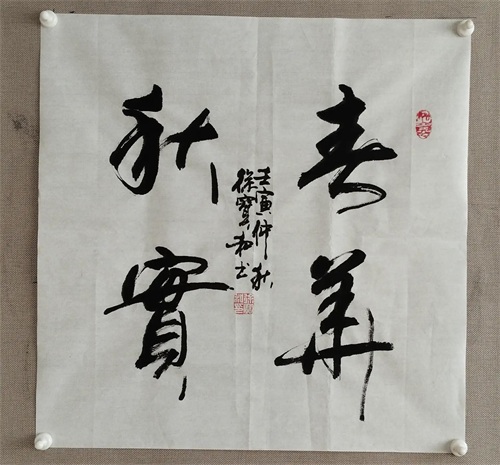 春華
秋實
壬寅仲秋
徐寶
书